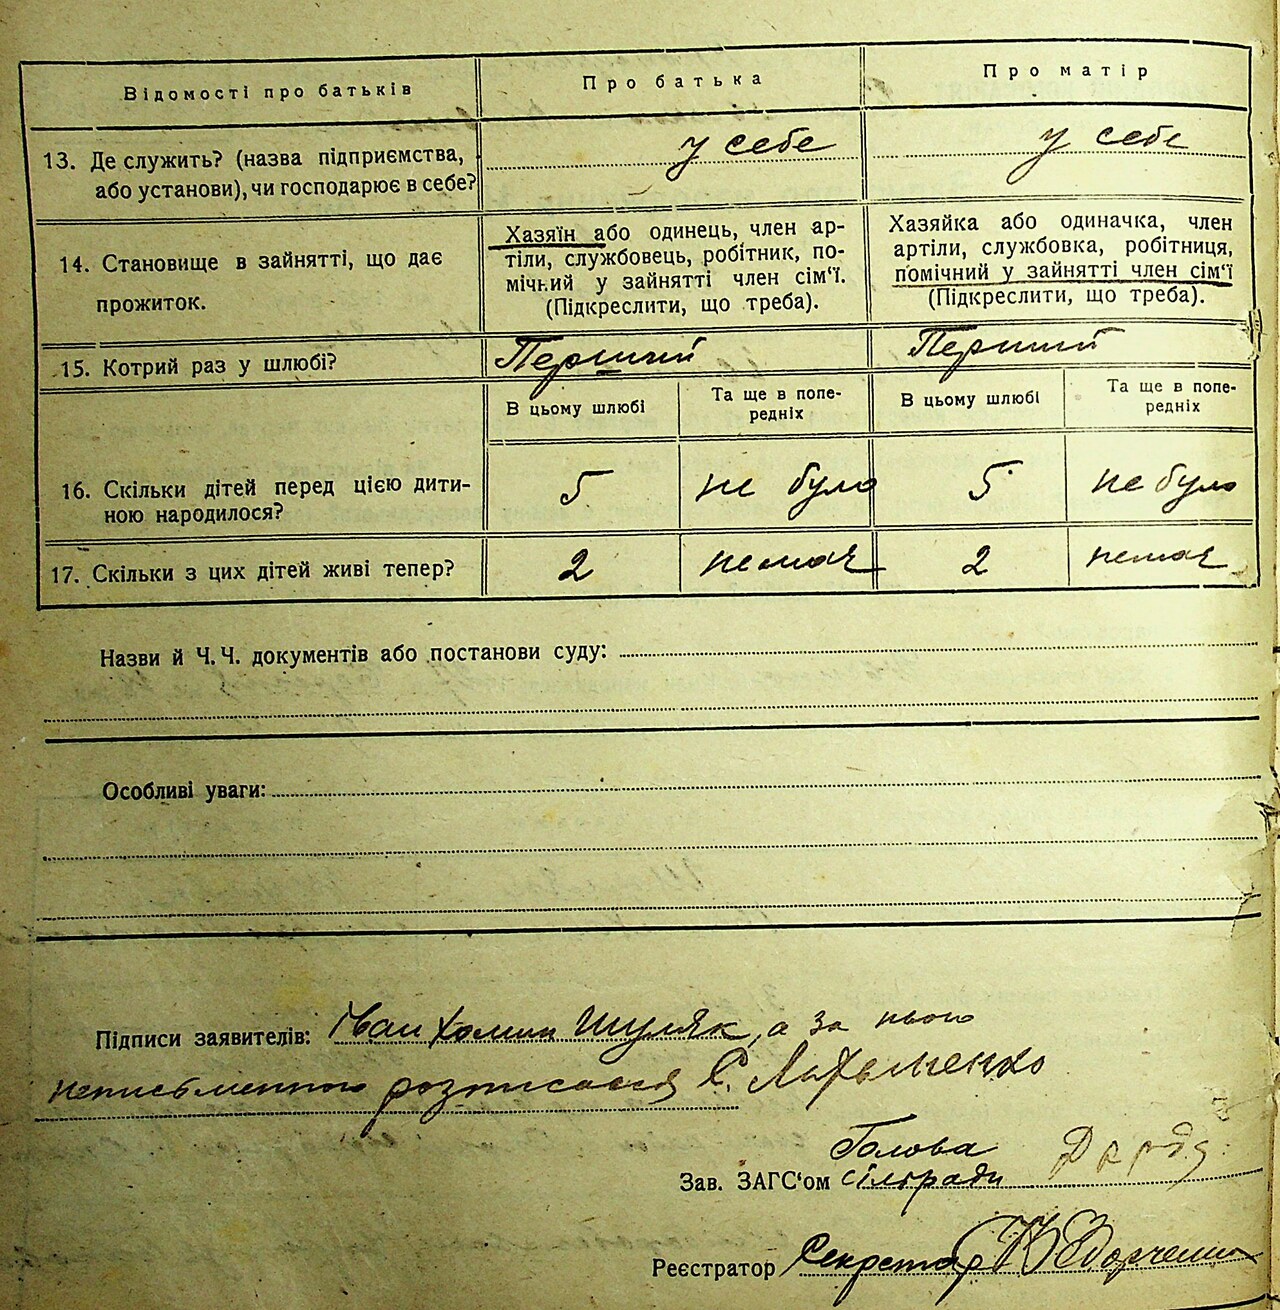 Відомості про батьків
Про батька
Про матір
13. Де служить? (назва підприємства,
або установи), чи господарює в себе?
у себе
у себе
14. Становище в зайнятті, що дає
прожиток.
Хазяїн або одинець, член ар-
тіли, службовець, робітник, по-
мічний у зайнятті член сім'ї.
(Підкреслити, що треба).
Хазяйка або одиначка, член
артіли, службовка, робітниця,
помічний у зайнятті член сім'ї
(Підкреслити, що треба).
15. Котрий раз у шлюбі?
Перший
Перший
В цьому шлюбі
Та ще в попе-
редніх
В цьому шлюбі
Та ще в попе-
редніх
16. Скільки дітей перед цією дити-
ною народилося?
5
не було
5
не було
17. Скільки з цих дітей живі тепер?
2
немає
2
немає
Назви й Ч.Ч. документів або постанови суду:
Особливі уваги:
Підписи заявителів: Іван Хомин Шуляк, а за нього
неписьменного розписався
Голова
Зав. ЗАГС'ом сільради
Реєстратор Секретар